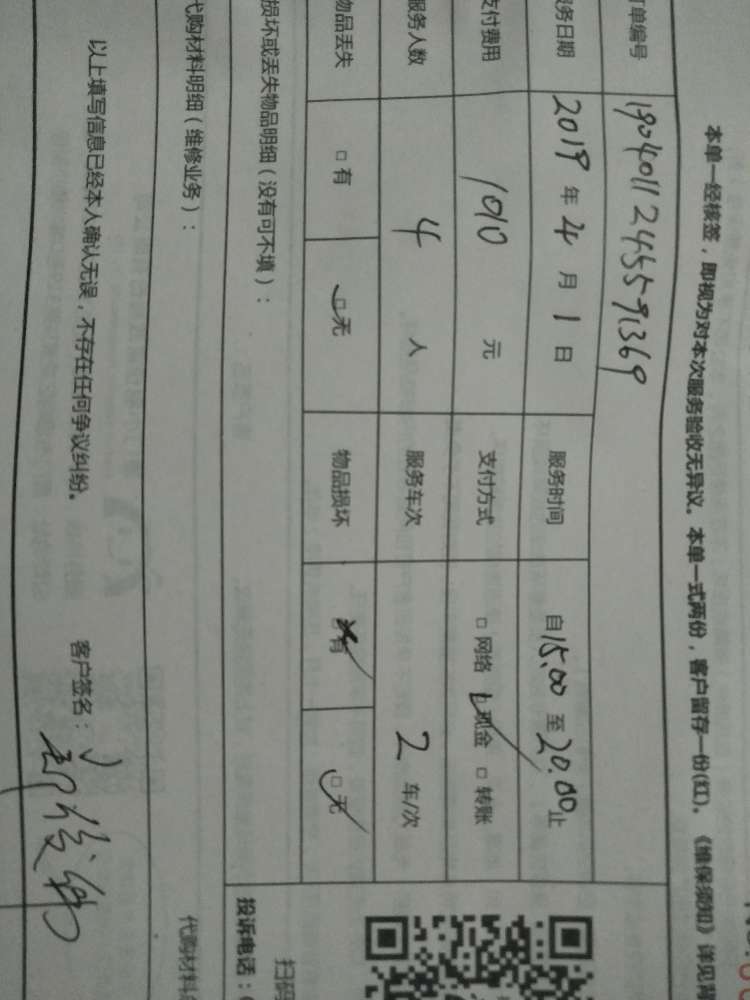 本单一经核签，即视为对本次服务验收无异议。本单一式两份，客户留存一份(红)。《维保须知》详见背
订单编号 1904011245591369
服务日期 2019 年 4 月 1 日 服务时间 自 15.00 至 20.00 止
支付费用 1010 元 支付方式 □ 网络 □ 现金 □ 转账
服务人数 4 人 服务车次 2 车/次
物品丢失 □ 有 □ 无 物品损坏 □ 有 □ 无
损坏或丢失物品明细（没有可不填）：
扫码
投诉电话：
代购材料明细（维修业务）：
代购材料
以上填写信息已经本人确认无误，不存在任何争议纠纷。 客户签名：